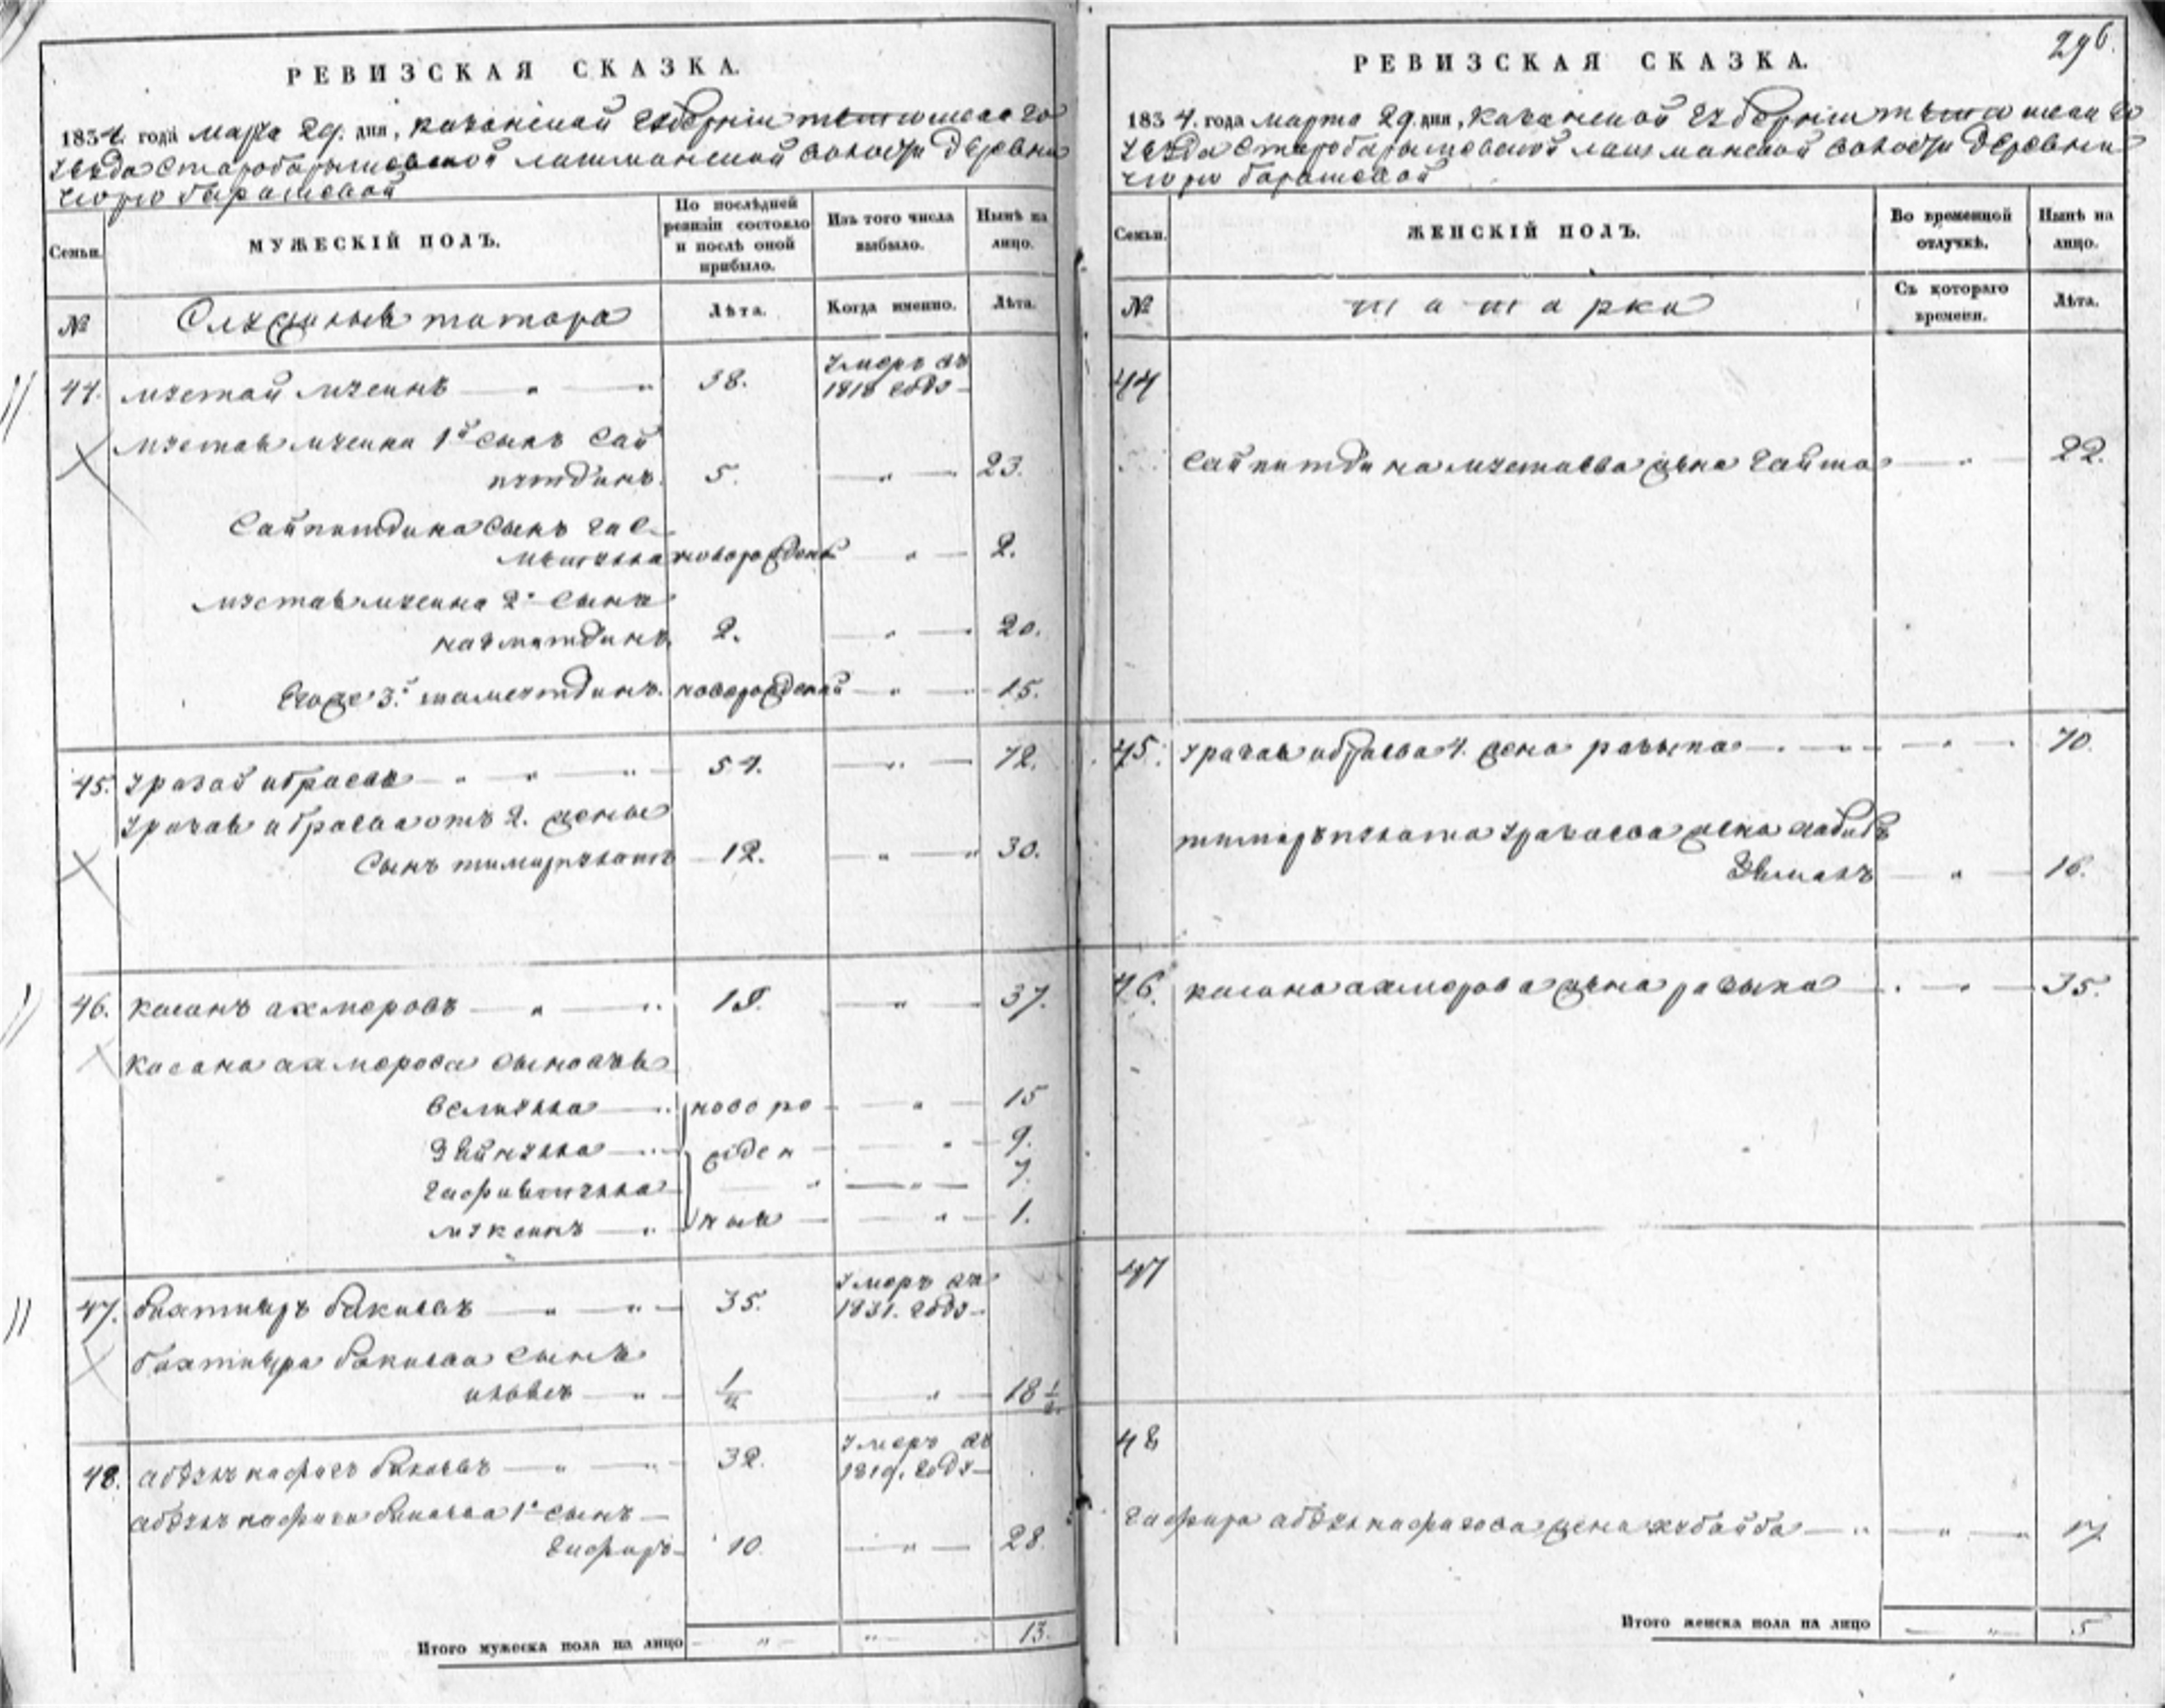 РЕВИЗСКАЯ СКАЗКА.
1834. года марта 29. дня, казанской губернии тетюшскаго
уезда Старобарышевской лашманской волости деревни
чюрю барашевой
Семьи.
МУЖЕСКІЙ ПОЛЪ.
По послѣдней ревизіи состояло и послѣ оной прибыло.
Изъ того числа выбыло.
Нынѣ на лицо.
№
Служилыя татара
Лѣта.
Когда именно.
Лѣта.
44. мустай мусинъ 38. умеръ въ 1818 году
мустая мусина 1й сынъ Сай
путдинъ. 5. 23.
Сайпитдина сынъ
новорожден 2.
мустая мусина 2й сынъ
назмутдинъ 2. 20.
Егоже 3й новорожденой 15.
45. уразай ибраевъ 54. 72.
уразая ибраева отъ 2. жены
Сынъ тимирпулатъ 12. 30.
46. касанъ ахмеровъ 19. 37.
касана ахмерова сыновья
велиулла новоро 15
зейнулла жден 9.
7.
мукминъ ныя 1.
47. бахтияръ бикеевъ 35. умеръ въ 1831. году
бахтияра бикеева сынъ
1/2 18 1/2
48. абдулнафигъ бикеевъ 32. умеръ въ 1819. году
абдулнафига бикеева 1й сынъ
гафаръ 10. 28.
Итого мужеска пола на лицо 13.
296.
РЕВИЗСКАЯ СКАЗКА.
1834. года марта 29. дня, казанской губернии тетюшскаго
уезда Старобарышевской лашманской волости деревни
чюрю барашевой
Семьи.
ЖЕНСКІЙ ПОЛЪ.
Во временной отлучкѣ.
Нынѣ на лицо.
№
татарки
Съ котораго времени.
Лѣта.
44
Сайпитдина мустаева жена 22.
45. уразая ибраева 1. жена 70.
тимирпулата уразаева жена
16.
46. касана ахмерова жена 35.
47
48
гафара абдулнафигова жена 17
Итого женска пола на лицо 5